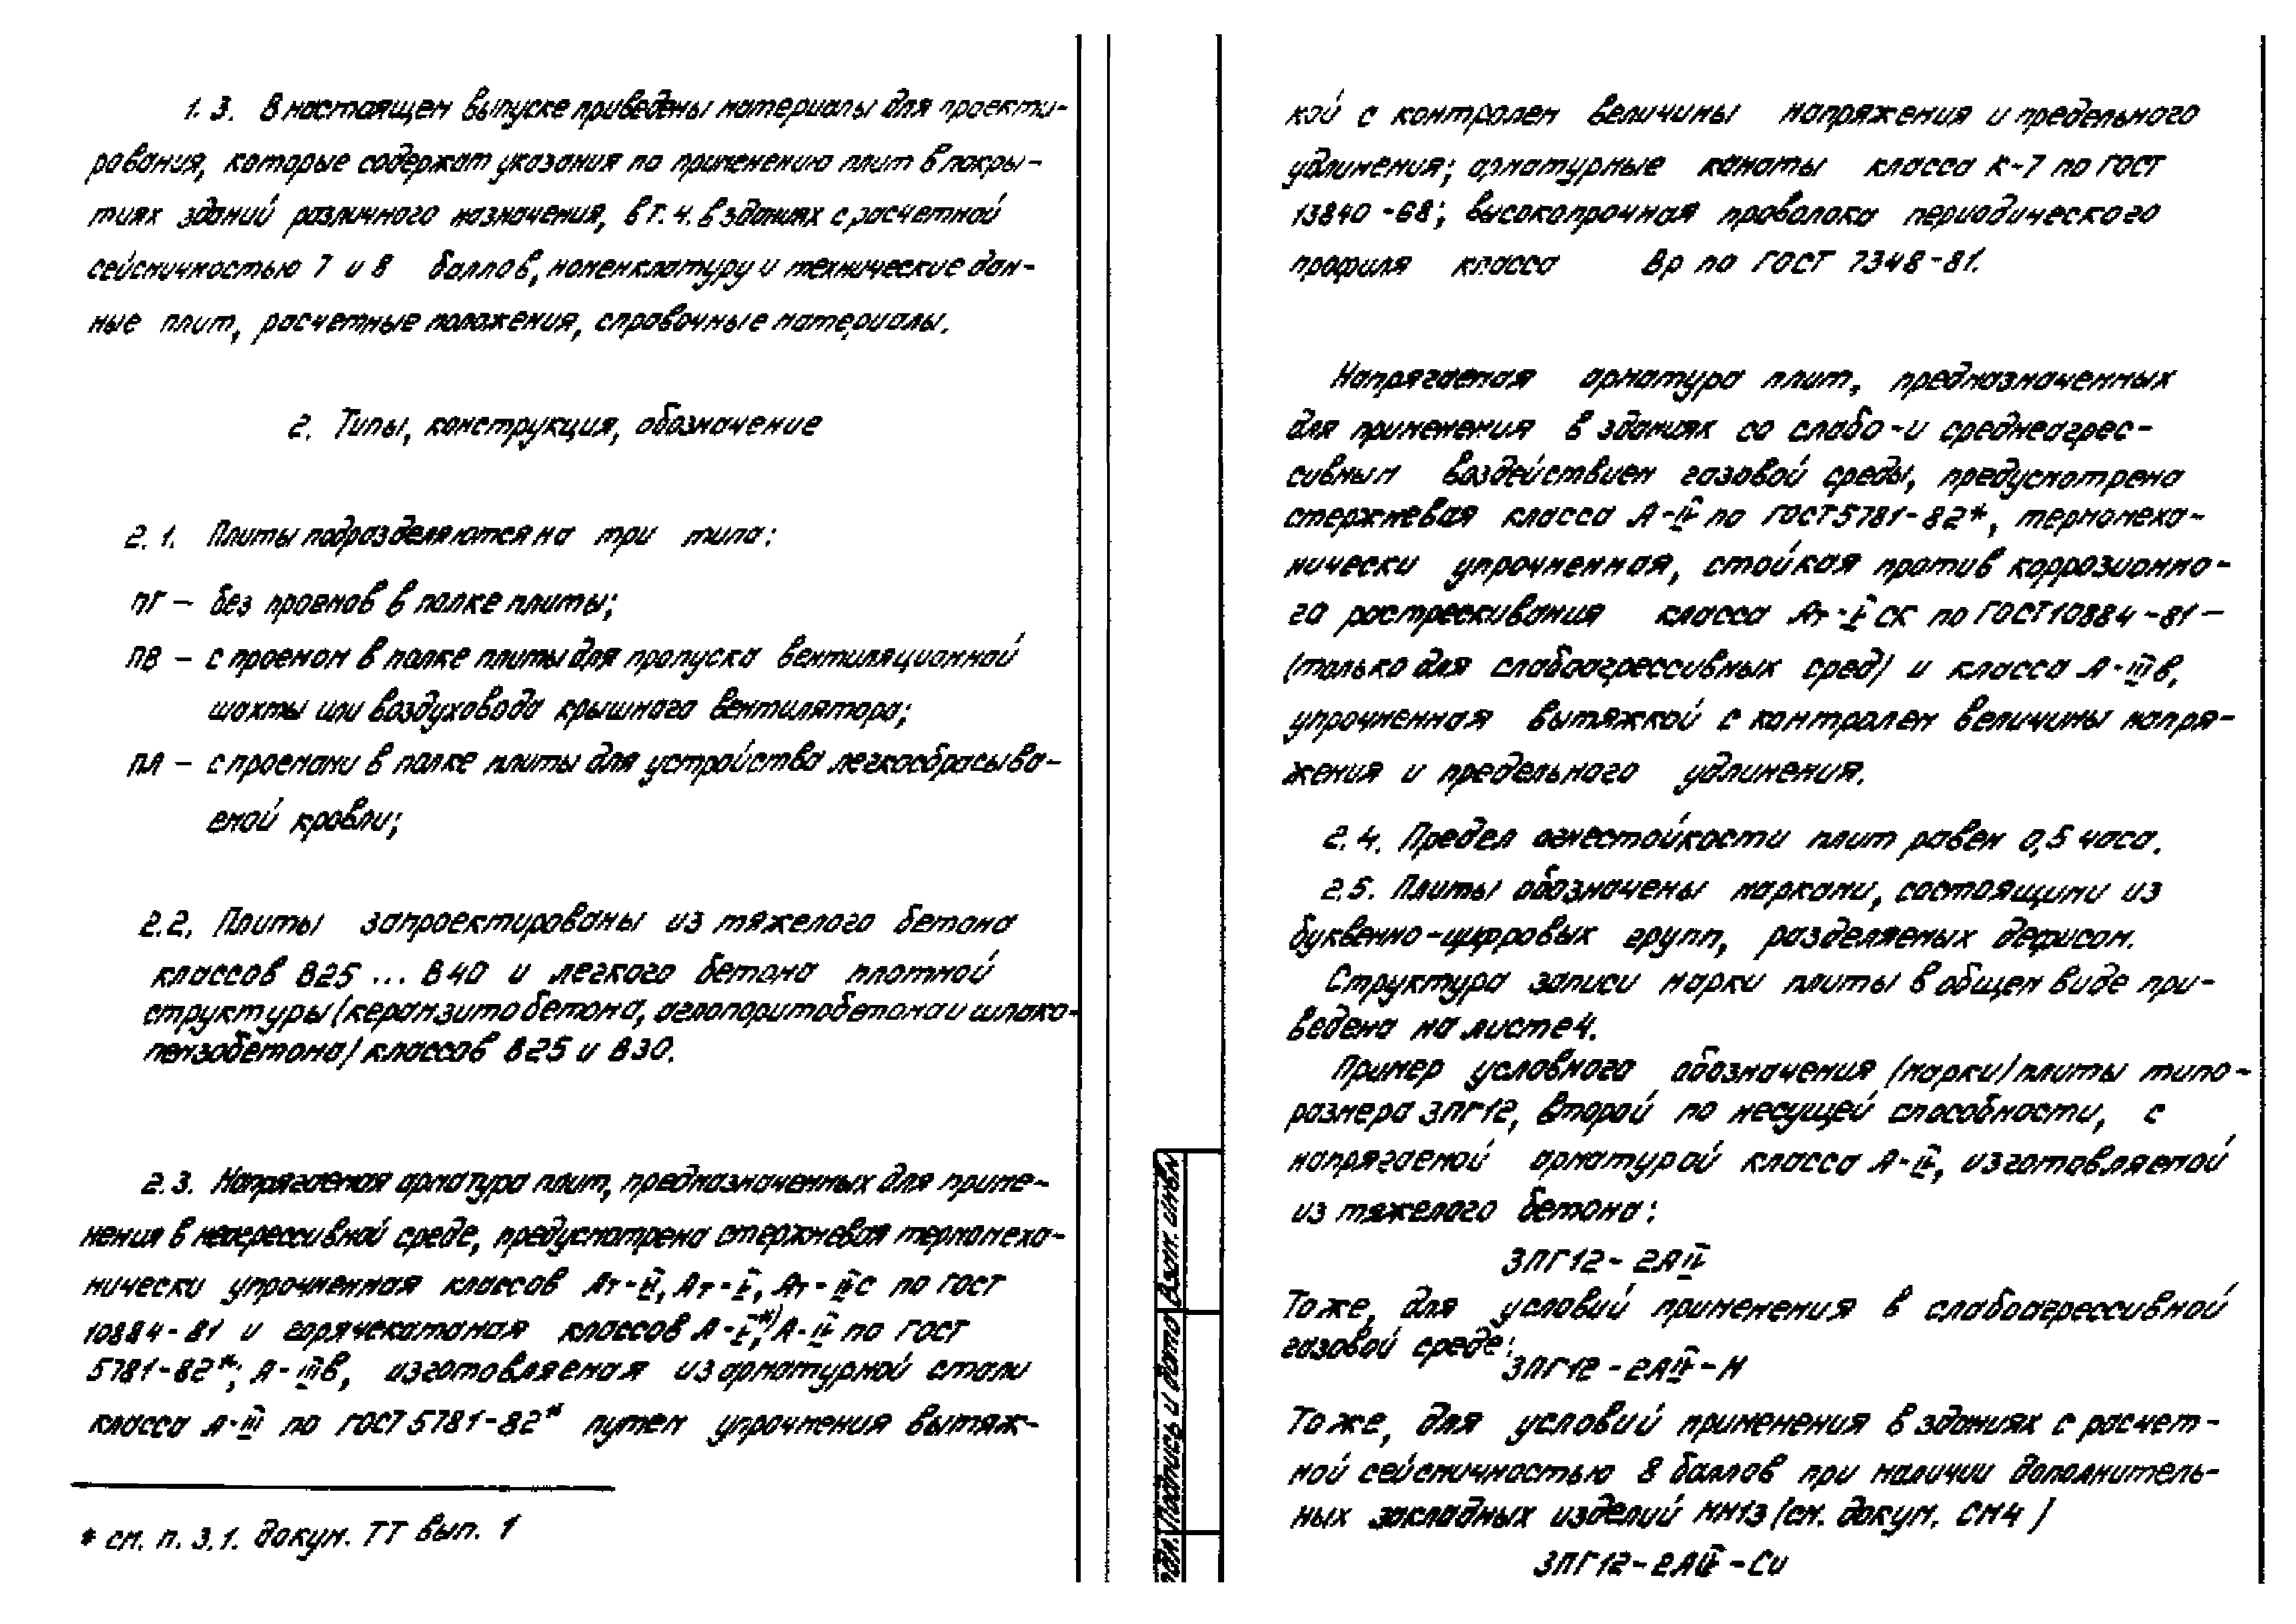 1.3. В настоящем выпуске приведены материалы для проекти-
рования, которые содержат указания по применению плит в покры-
тиях зданий различного назначения, в т.ч. в зданиях с расчетной
сейсмичностью 7 и 8 баллов, номенклатуру и технические дан-
ные плит, расчетные положения, справочные материалы.
2. Типы, конструкция, обозначение
2.1. Плиты подразделяются на три типа:
ПГ – без проемов в полке плиты;
ПВ – с проемом в полке плиты для пропуска вентиляционной
шахты или воздуховода крышного вентилятора;
ПЛ – с проемами в полке плиты для устройства легкосбрасыва-
емой кровли;
2.2. Плиты запроектированы из тяжелого бетона
классов В25 ... В40 и легкого бетона плотной
структуры (керамзитобетона, аглопоритобетона и шлако-
пемзобетона) классов В25 и В30.
2.3. Напрягаемая арматура плит, предназначенных для приме-
нения в неагрессивной среде, предусмотрена стержневая термомеха-
нически упрочненная классов Ат-VI, Ат-V, Ат-IVС по ГОСТ
10884-81 и горячекатаная классов А-V*), А-IV по ГОСТ
5781-82*; А-IIIв, изготовляемая из арматурной стали
класса А-III по ГОСТ 5781-82* путем упрочнения вытяж-
* см. п. 3.1. докум. ТТ вып. 1
Взам. инв.№
Подпись и дата
подл.
кой с контролем величины напряжения и предельного
удлинения; арматурные канаты класса К-7 по ГОСТ
13840-68; высокопрочная проволока периодического
профиля класса Вр по ГОСТ 7348-81.
Напрягаемая арматура плит, предназначенных
для применения в зданиях со слабо-и среднеагрес-
сивным воздействием газовой среды, предусмотрена
стержневая класса А-IV по ГОСТ 5781-82*, термомеха-
нически упрочненная, стойкая против коррозионно-
го растрескивания класса Ат-V СК по ГОСТ 10884-81 –
(только для слабоагрессивных сред) и класса А-IIIв,
упрочненная вытяжкой с контролем величины напря-
жения и предельного удлинения.
2.4. Предел огнестойкости плит равен 0,5 часа.
2.5. Плиты обозначены марками, состоящими из
буквенно-цифровых групп, разделяемых дефисом.
Структура записи марки плиты в общем виде при-
ведена на листе 4.
Пример условного обозначения (марки) плиты типо-
размера 3ПГ12, второй по несущей способности, с
напрягаемой арматурой класса А-IV, изготовляемой
из тяжелого бетона:
3ПГ12-2АIV
То же, для условий применения в слабоагрессивной
газовой среде:
3ПГ12-2АIV-Н
То же, для условий применения в зданиях с расчет-
ной сейсмичностью 8 баллов при наличии дополнитель-
ных закладных изделий МН13 (см. докум. СМ4)
3ПГ12-2АIV-Си